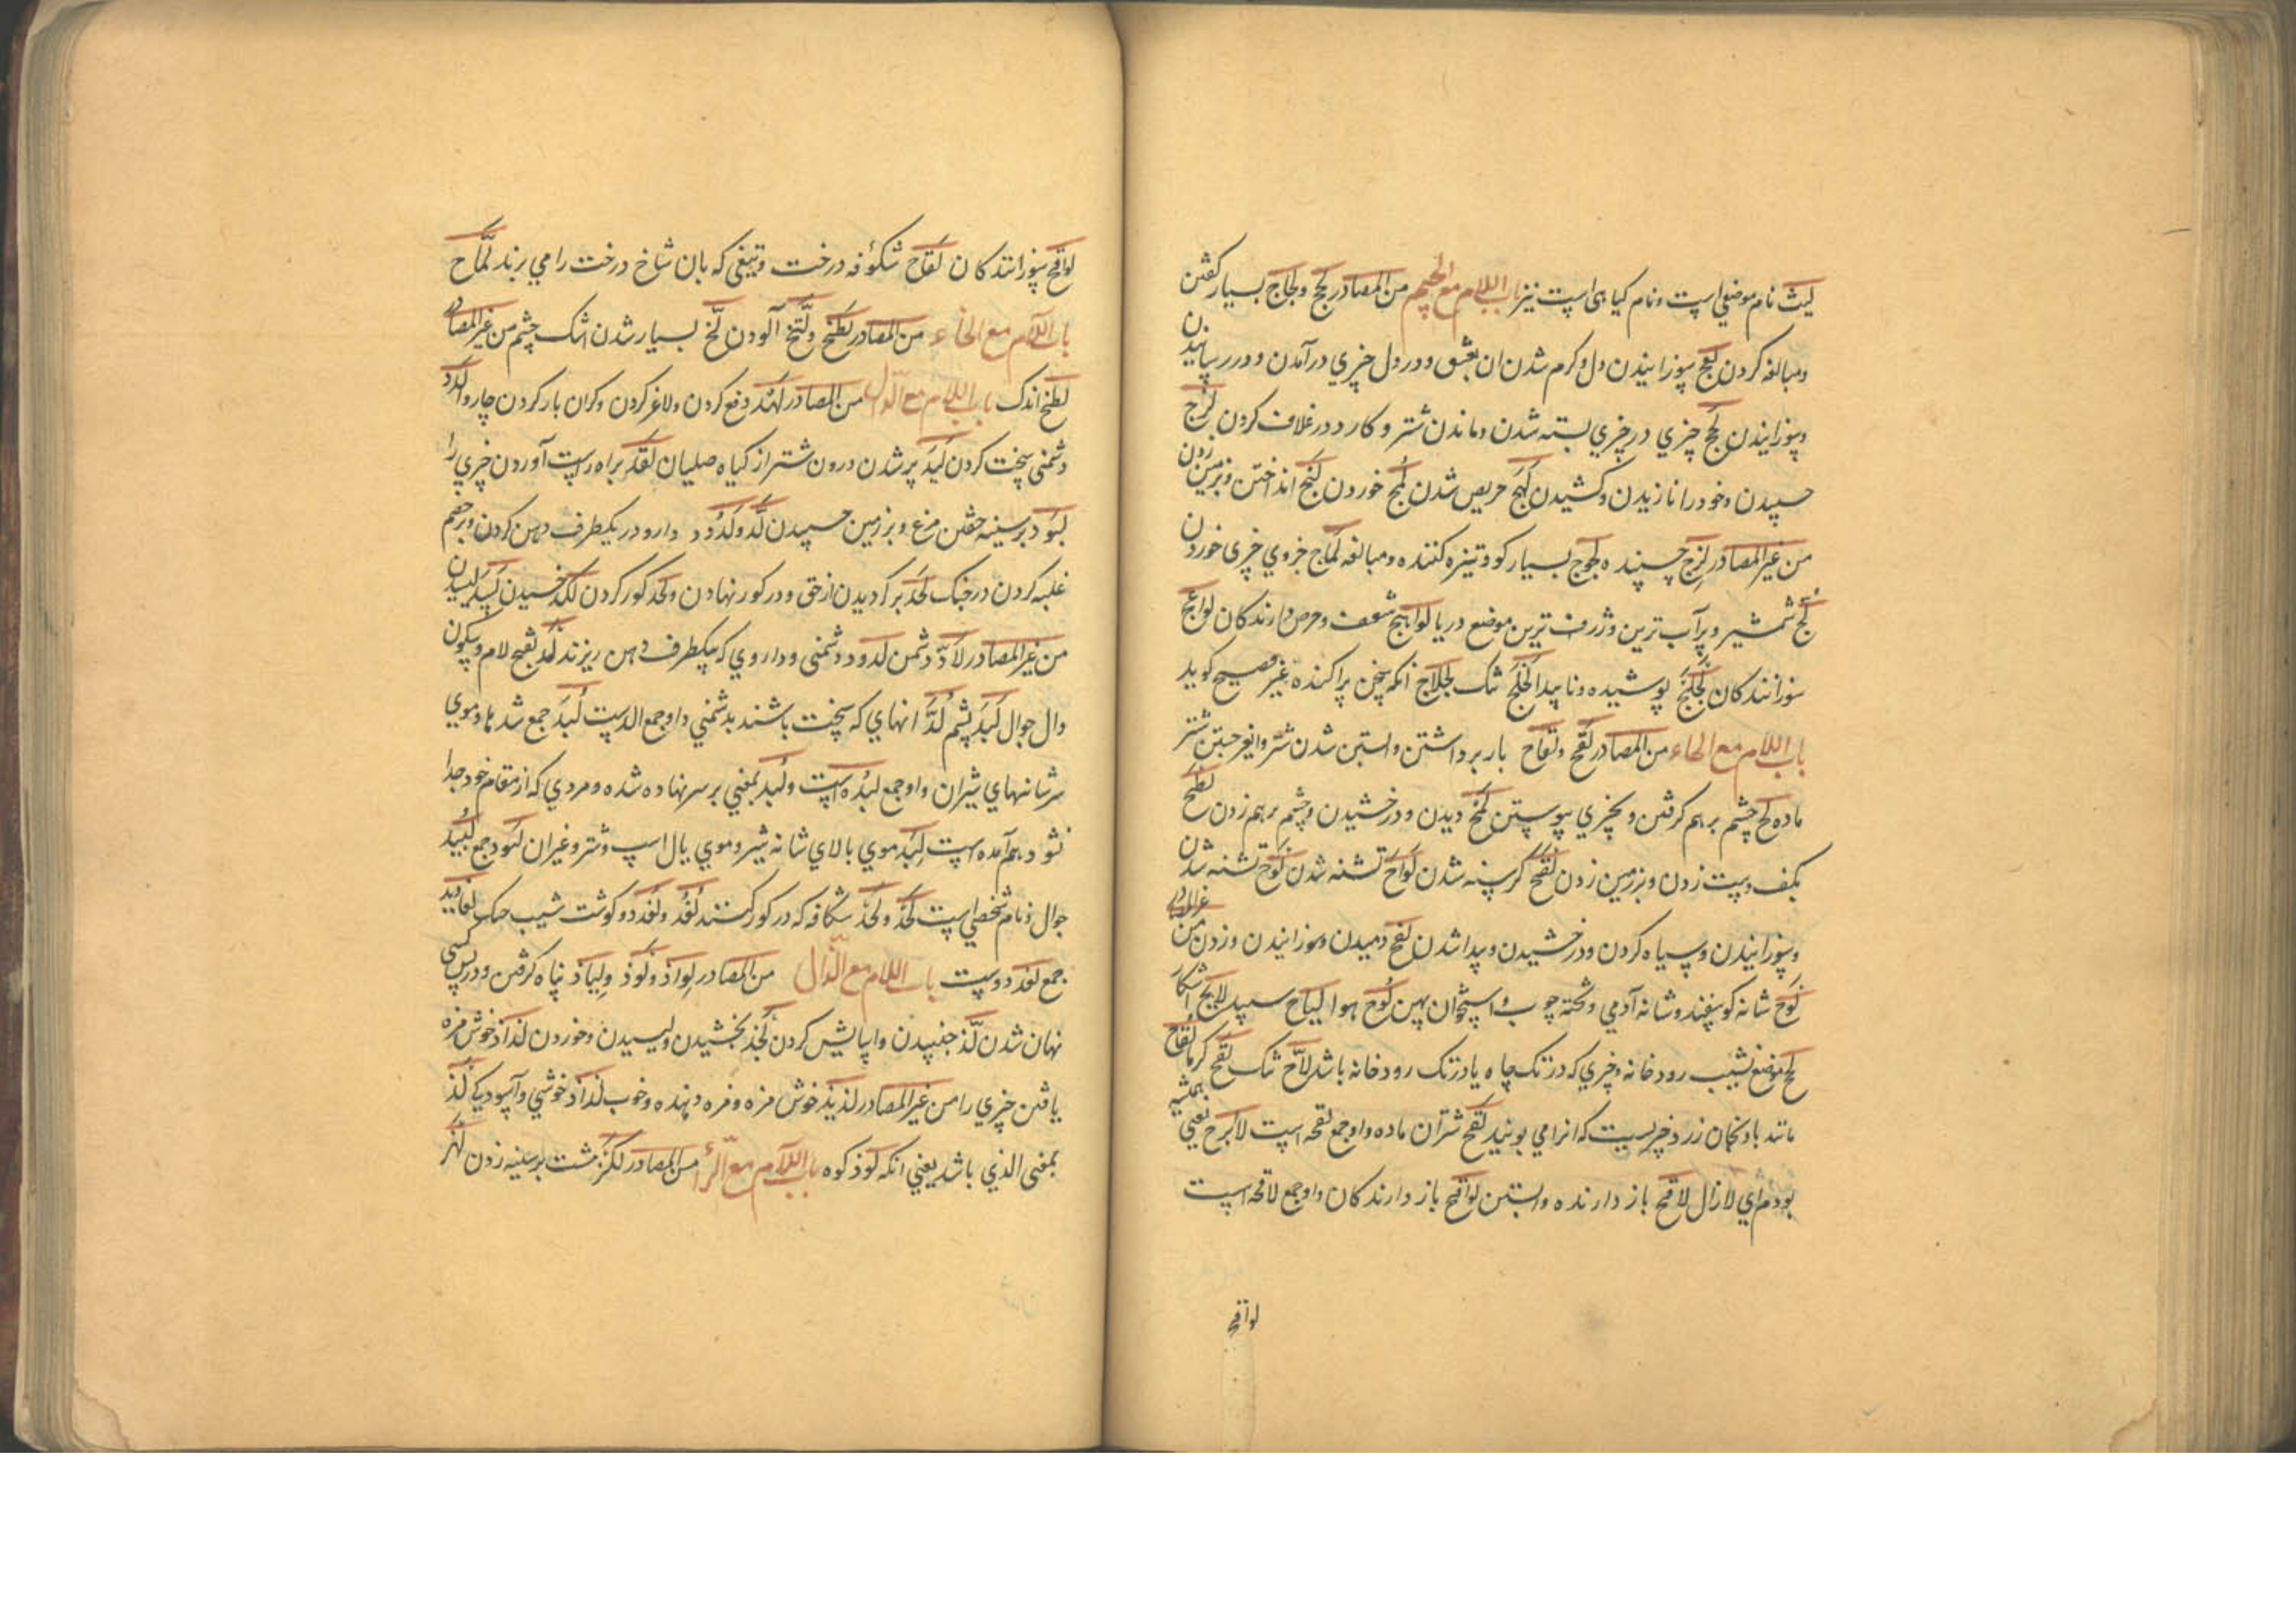 لیث نام موضعی است و نام کیاهی است نیز باب اللام مع الجیم من المصادر لجج ولجاج بسیار کفتن
ومبالغه کردن لعج سوزانیدن دل و کرم شدن ان بعشق و در دل چیزي درآمدن و دررسانیدن
وسوزانیدن لحج چیزي در چیزي بسته شدن و ماندن شتر و کارد در غلاف کردن لزج
چسپیدن وخود را نازیدن و کشیدن لهج حریص شدن لمج خوردن لبج انداختن و بر زمین زدن
من غیر المصادر لزج چسپنده لجوج بسیار کو و ستیزه کننده و مبالغه لماج جزوي چیزی خوردن
لج شمشیر و پرآب ترین و ژرف ترین موضع دریا لواهج شعف و حرص دارندکان لواعج
سوزانندکان لجلج پوشیده و ناپیدا لخلج شک لجلاج انکه سخن پراکنده غیر فصیح کوید
باب اللام مع الحاء من المصادر لقح ولقاح بار برداشتن و ابستن شدن شتر و انفر جستن شتر
ماده لح چشم بر هم کرفتن و بچیزي پیوستن لمح دیدن و درخشیدن و چشم بر هم زدن لطح
بکف دست زدن و بر زمین زدن لقح کرسنه شدن لواح تشنه شدن لوح تشنه شدن
وسوزانیدن و سیاه کردن و درخشیدن و پیدا شدن لفح دمیدن و سوزانیدن و زدن من غیر المصادر
لوح شانه کوسفند و شانه آدمي و تخته چوب و استخوان پهن لوح هوا لیاح سپید لایح آشکار
لح موضع نشیب رودخانه و چیزي که در تک چاه یا در تک رودخانه باشد لاح تنک لفح کرما لفاح
مانند بادنجان زرد چیزیست که انرا می بویند لقح شتران ماده و او جمع لقحه است لا ابرح یعني همیشه
بودم اي لا زال لاقح باز دارنده و ابستن لواقح باز دارندکان و او جمع لاقحه است
لواقح
لواقح سوزانندکان لقاح شکوفه درخت و تیغی که بان شاخ درخت را مي برند لماح
باب اللام مع الخاء من المصادر لطخ ولتخ آلودن لخ بسیار شدن اشک چشم من غیر المصادر
لطخ اندک باب اللام مع الدال من المصادر لهد دفع کردن و لاغر کردن و کران بار کردن چاروا لدد
دشمنی سخت کردن لبد پر شدن درون شتر از کیاه صلیان لقد براه راست آوردن چیزي را
لبود بر سینه خفتن مرغ و بر زمین چسپیدن لد ولدود دارو در یکطرف دهن کردن و بر خصم
غلبه کردن در جنک لحد بر کردیدن از حق و در کور نهادن و لحد کور کردن لکد چسپیدن لسد لیسیدن
من غیر المصادر لاد دشمن لدود دشمنی و داروي که بیکطرف دهن ریزند لد بفتح لام و سکون
دال جوال لبد پشم لد انهاي که سخت باشند بدشمني و او جمع الد است لبد جمع شدها و موي
سرشانهاي شیران و او جمع لبده است ولبد بمعني بر سر نهاده شده و مردي که از مقام خود جدا
نشود و بهم آمده است لبد موي بالاي شانه شیر و موي یال اسپ و شتر و غیر ان لبود جمع لبید
جوال و نام شخصي است لحد ولحد شکافه که در کور کنند لغد ولغد دو کوشت شیب حنک لغادید
جمع لغدود است باب اللام مع الذال من المصادر لواذ ولوذ ولیاذ پناه کرفتن و در پس کسی
نهان شدن لذ جنبیدن و اپایش کردن لجذ بخشیدن و لیسیدن و خوردن لذاذ خوش مزه
یافتن چیزي را من غیر المصادر لذیذ خوش مزه و مزه دهنده و خوب لذاذ خوشي و آسودکي لذ
بمعنی الذي باشد یعني انکه لوذ کوه باب اللام مع الزاء من المصادر لکز مشت بر سینه زدن لهز